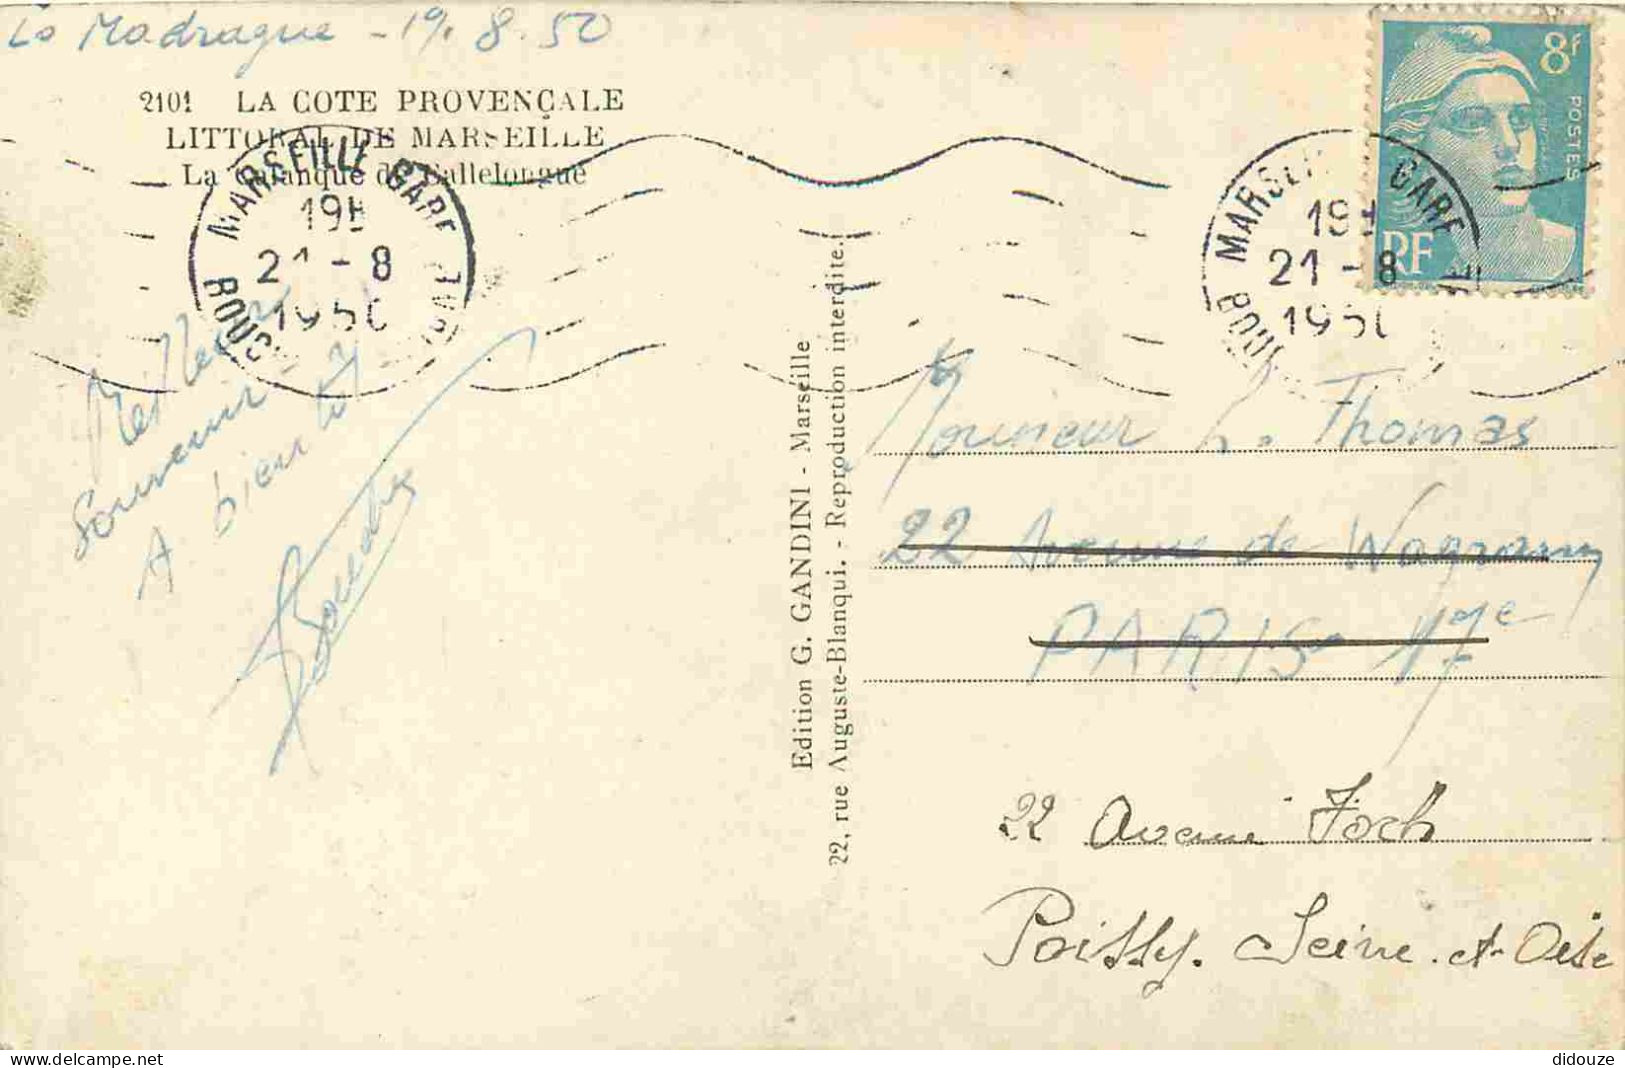 La Madrague - 19. 8. 50
2101 LA COTE PROVENÇALE
LITTORAL DE MARSEILLE
La Calanque de Callelongue
MARSEILLE GARE
19H
21 - 8
1950
Meilleurs
Souvenirs
A bientôt
Edition G. GANDINI - Marseille
22, rue Auguste-Blanqui. - Reproduction interdite.
8f
POSTES
RF
MARSEILLE GARE
21 - 8
1950
Monsieur L. Thomas
22 Avenue de Wagram
PARIS 17e
22 Avenue Foch
Poissy. Seine-et-Oise
didouze